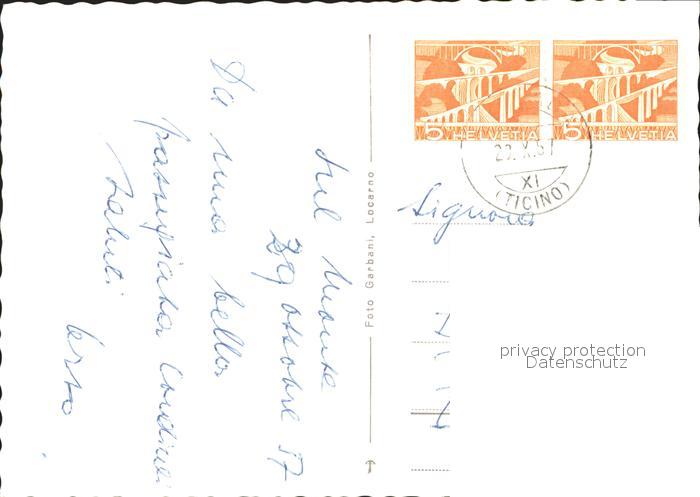 Sul Monte
29 ottobre 57
Da una bella
passeggiata cordiali
saluti
Foto Garbani, Locarno
5 HELVETIA
5 HELVETIA
29.X.57
XI
(TICINO)
Signora
privacy protection
Datenschutz